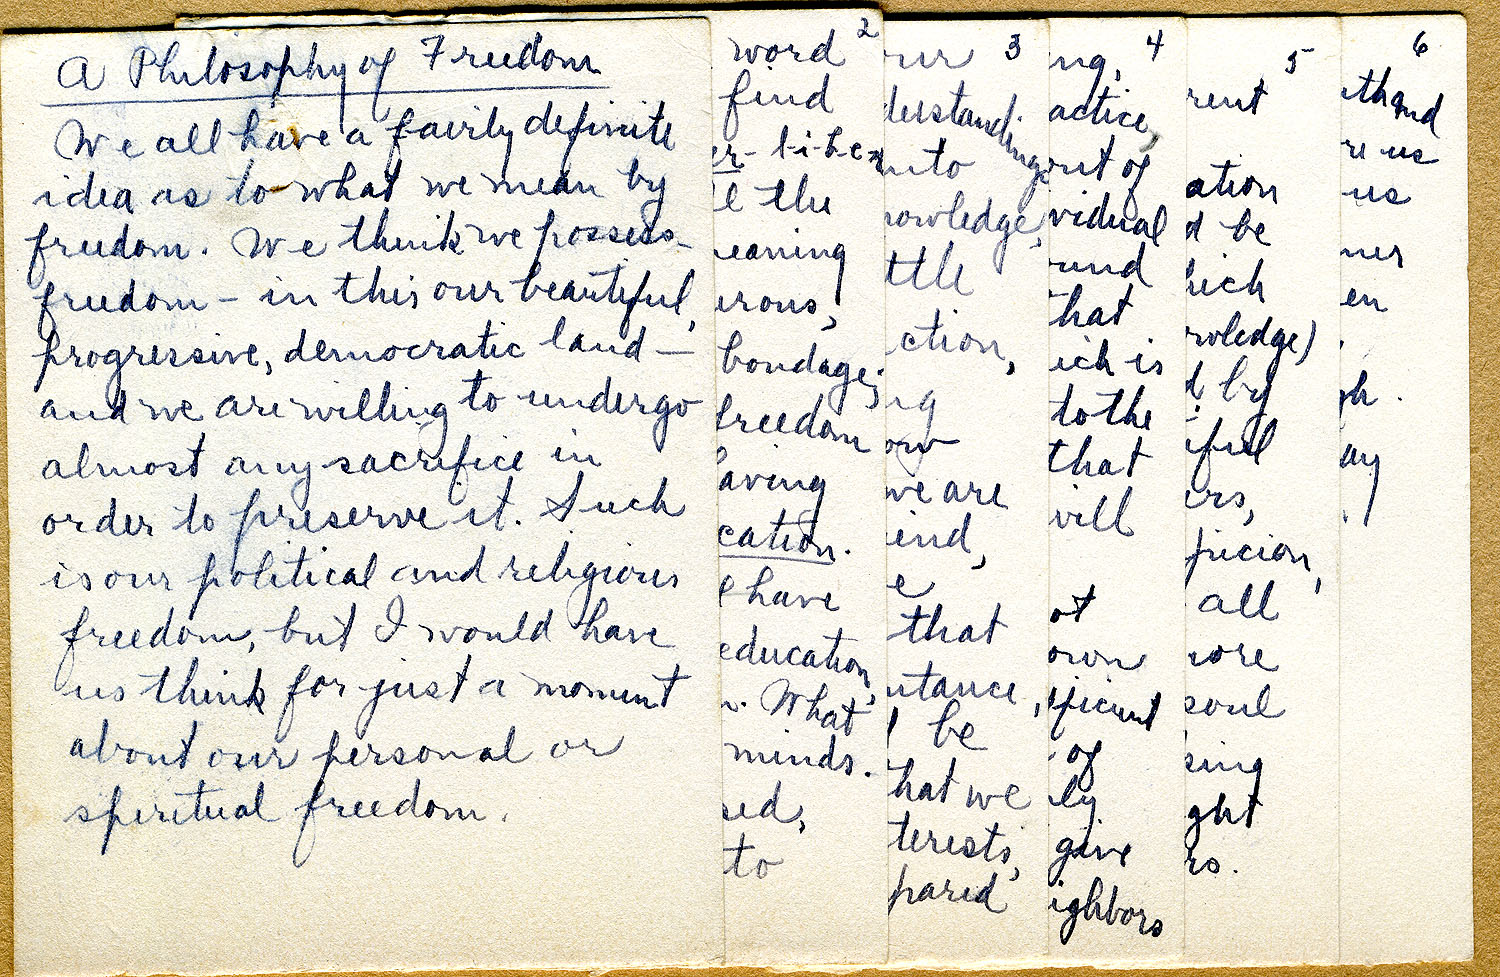 A Philosophy of Freedom
We all have a fairly definite
idea as to what we mean by
freedom. We think we possess
freedom - in this our beautiful,
progressive, democratic land -
and we are willing to undergo
almost any sacrifice in
order to preserve it. Such
is our political and religious
freedom, but I would have
us think for just a moment
about our personal or
spiritual freedom.
2
word
find
er- l-i-b-e-r
l the
eaning
erous,
bondage;
freedom
aving
cation.
have
education,
. What
minds.
sed,
to
3
our
derstandings
into
nowledge,
ttle
ction,
ng
ow
we are
ind,
e
that
utance,
be
hat we
terests,
pared
4
ng,
actice,
out of
vidual
ound
that
ich is
to the
that
will
ot
own
ficient
of
ly
give
ighbors
5
rent
ation
d be
hich
owledge)
d by
iful
ers,
picion,
all
more
soul
sing
ght
rs.
6
th and
re us
us
ner
en
.
gh.
ay
.